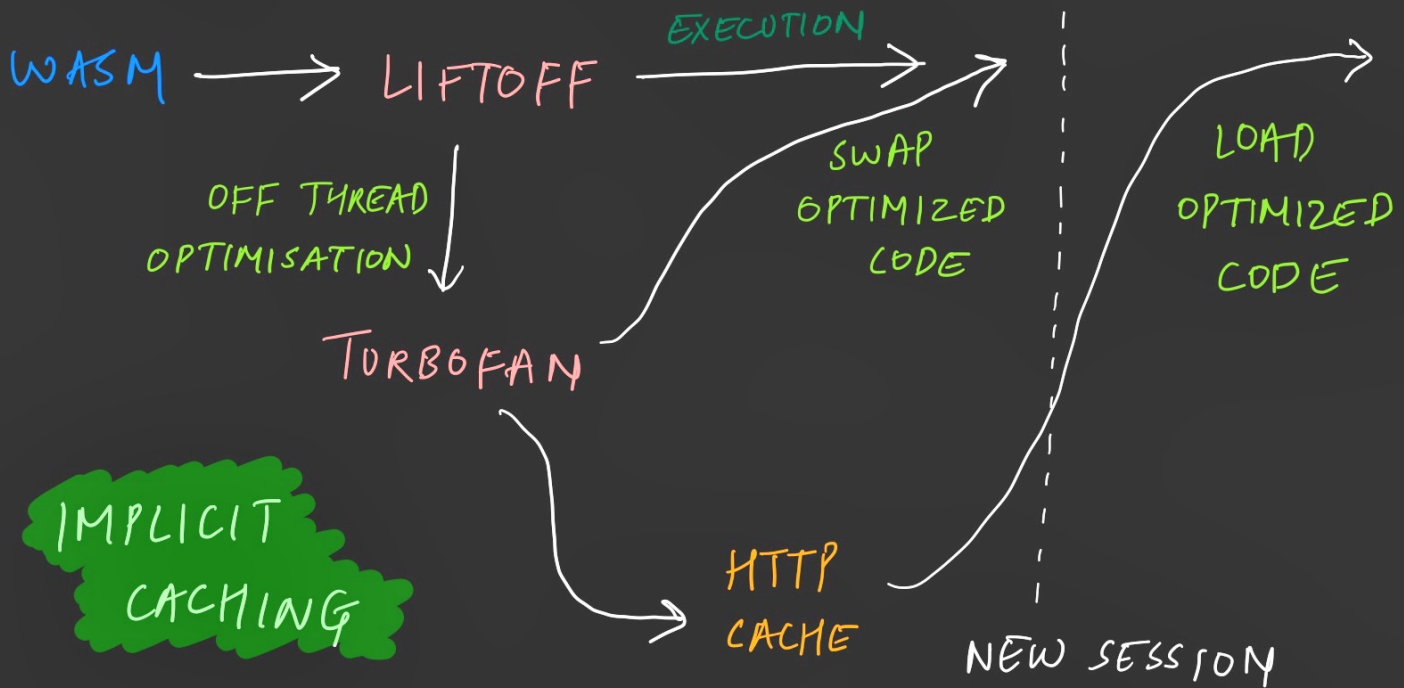 WASM
LIFTOFF
EXECUTION
OFF THREAD
OPTIMISATION
SWAP
OPTIMIZED
CODE
LOAD
OPTIMIZED
CODE
TURBOFAN
IMPLICIT
CACHING
HTTP
CACHE
NEW SESSION